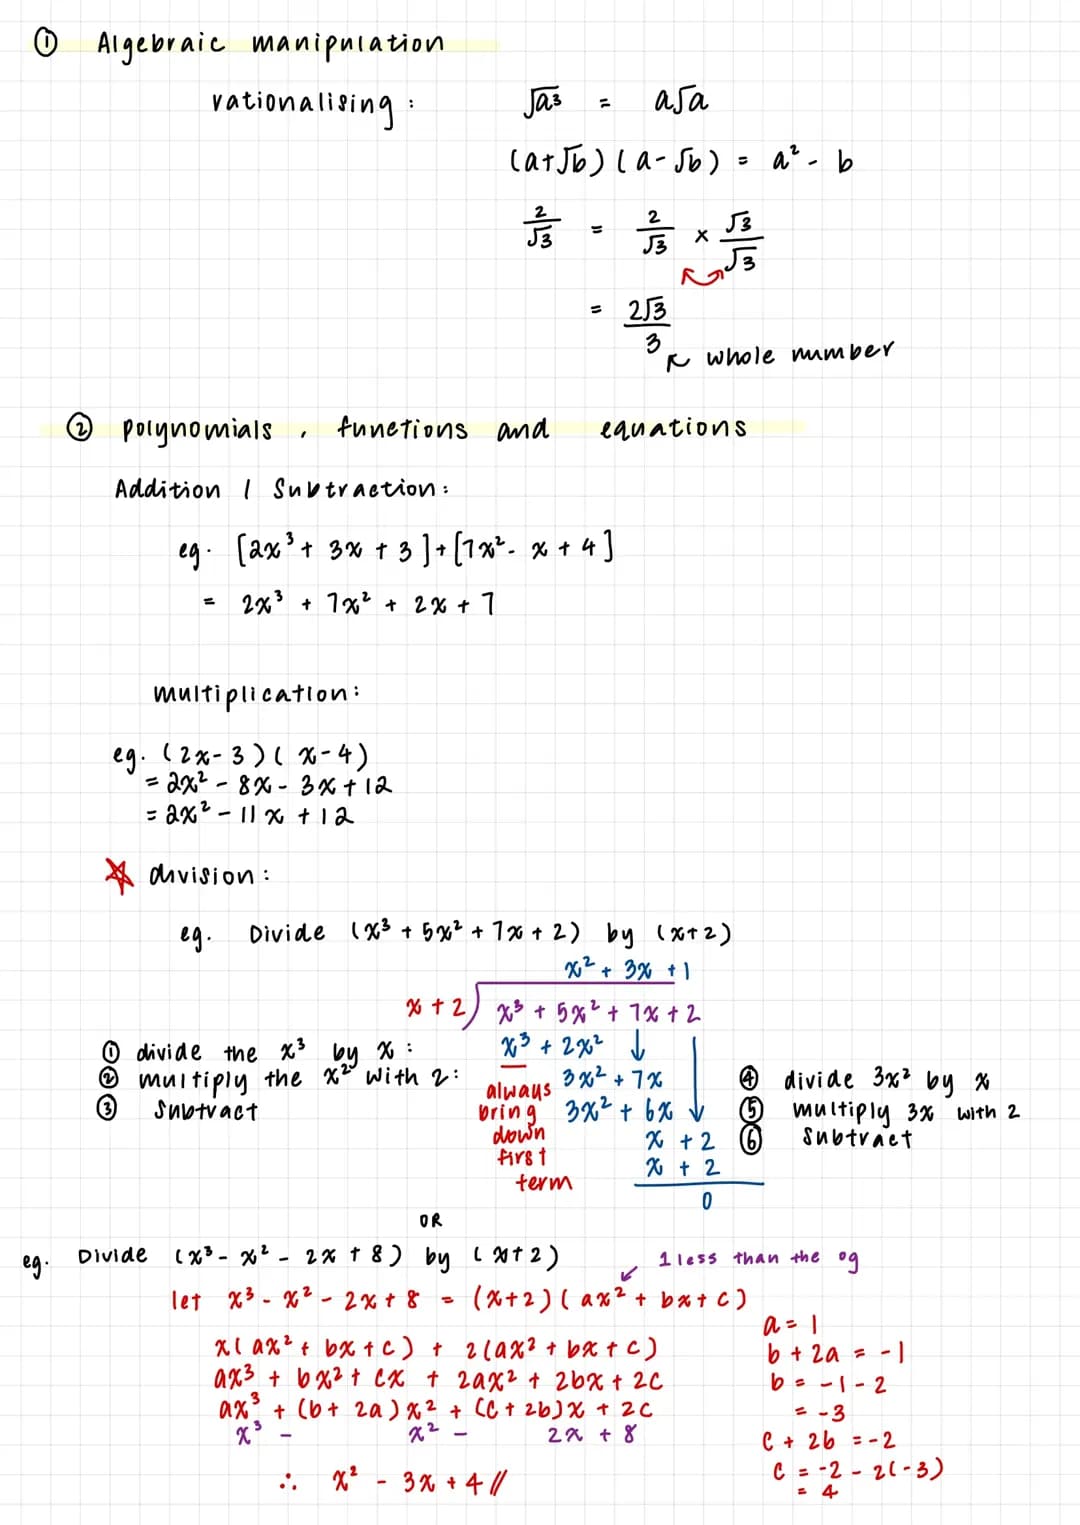 ① Algebraic manipulation
rationalising : √a³ = a√a
(a+√b)(a-√b) = a² - b
2/√3 = 2/√3 × √3/√3
= 2√3/3
whole number
② polynomials, functions and equations
Addition / Subtraction:
eg. [2x³ + 3x + 3]+[7x² - x + 4]
= 2x³ + 7x² + 2x + 7
multiplication:
eg. (2x-3)(x-4)
= 2x² - 8x - 3x + 12
= 2x² - 11x + 12
division:
eg. Divide (x³ + 5x² + 7x + 2) by (x+2)
x² + 3x + 1
x + 2) x³ + 5x² + 7x + 2
x³ + 2x²
① divide the x³ by x :
② multiply the x² with 2:
③ Subtract
always bring down first term
3x² + 7x
3x² + 6x
x + 2
x + 2
0
④ divide 3x² by x
⑤ multiply 3x with 2
⑥ Subtract
OR
eg. Divide (x³ - x² - 2x + 8) by (x+2)
1 less than the og
let x³ - x² - 2x + 8 = (x+2)(ax² + bx + c)
x(ax² + bx + c) + 2(ax² + bx + c)
ax³ + bx² + cx + 2ax² + 2bx + 2c
ax³ + (b + 2a)x² + (c + 2b)x + 2c
x³ - x² - 2x + 8
∴ x² - 3x + 4 //
a = 1
b + 2a = -1
b = -1 - 2
= -3
c + 2b = -2
c = -2 - 2(-3)
= 4